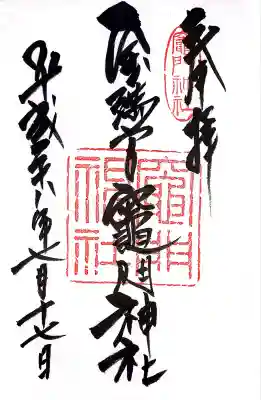 奉拝
竈門神社
宮竈門神社
竈門神社
平成 年七月十七日